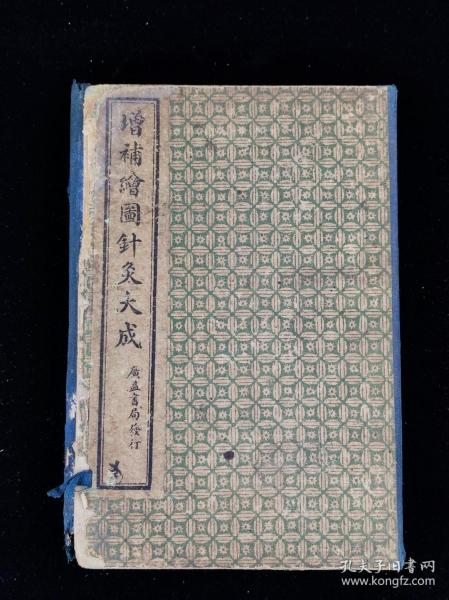 增補繪圖針灸大成
廣益書局發行
孔夫子旧书网
www.kongfz.com